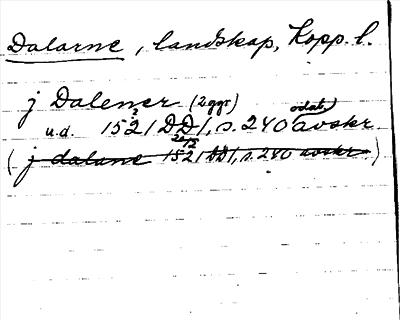 Dalarne, landskap, Kopp. l.
j Dalener (2ggr)
u.d. 1521 DD 1, s. 240 odat. avskr.
(j dalane 1521 DD 1, s. 240 avskr.)